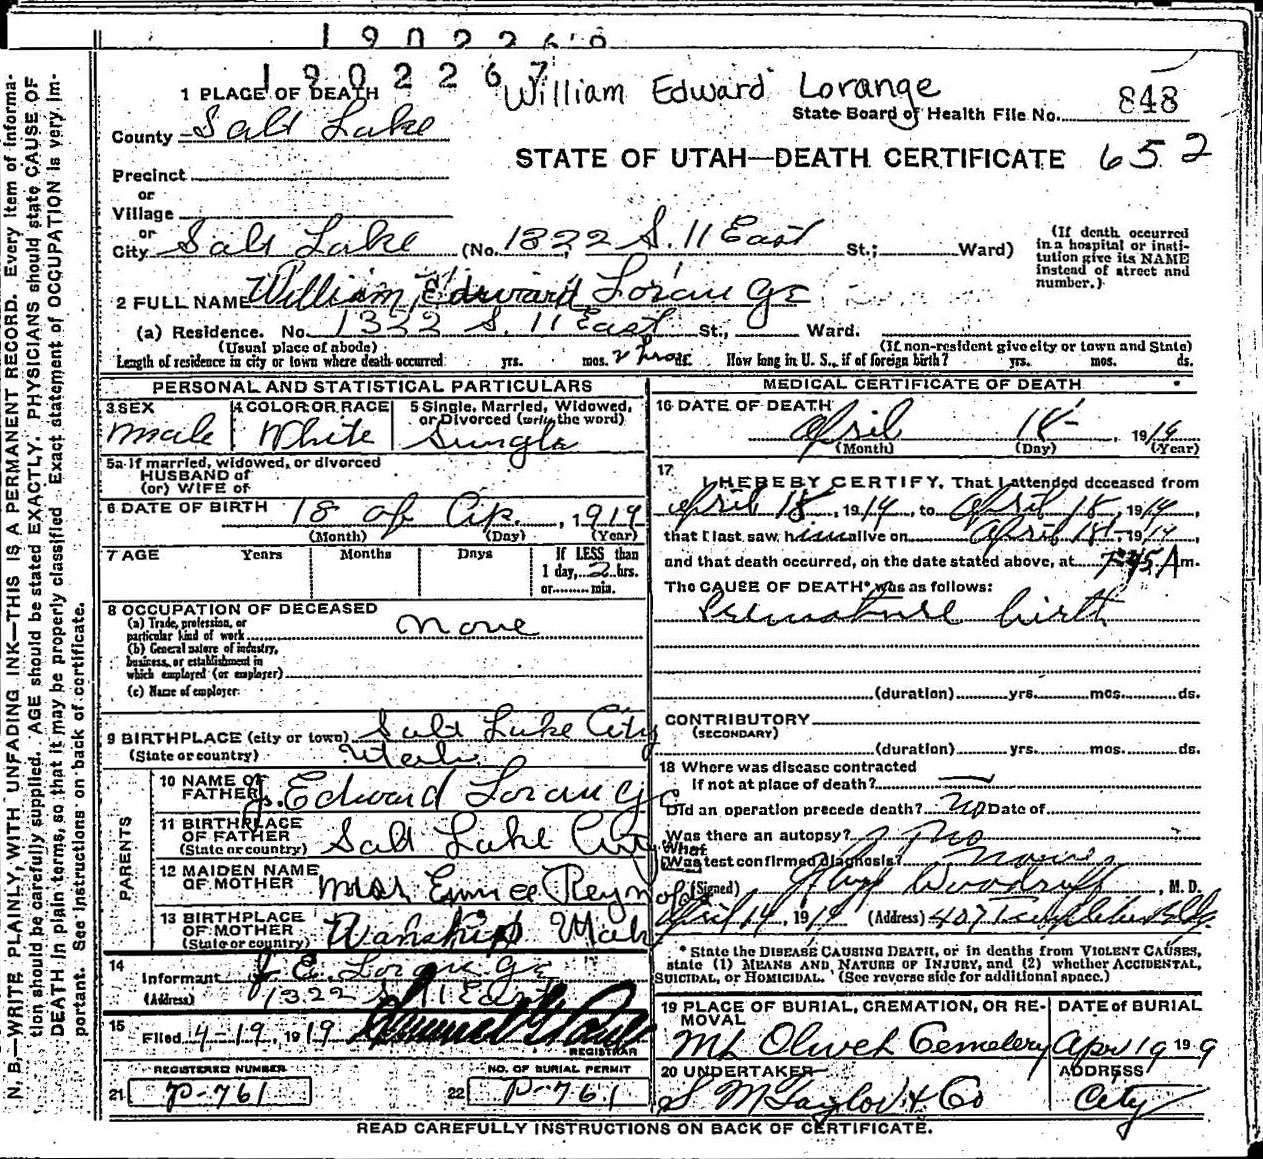 1902268
1902267
William Edward Lorange
1 PLACE OF DEATH
State Board of Health File No. 848
County Salt Lake
STATE OF UTAH—DEATH CERTIFICATE 652
Precinct
or
Village
or
City Salt Lake (No. 1322 S. 11 East St.; Ward)
(If death occurred in a hospital or insti-
tution give its NAME
instead of street and
number.)
2 FULL NAME William Edward Lorange
(a) Residence. No. 1322 S. 11 East St., Ward.
(Usual place of abode) (If non-resident give city or town and State)
Length of residence in city or town where death occurred yrs. mos. 2 hrs. ds. How long in U. S., if of foreign birth? yrs. mos. ds.
PERSONAL AND STATISTICAL PARTICULARS
3 SEX
Male
4 COLOR OR RACE
White
5 Single, Married, Widowed,
or Divorced (write the word)
Single
5a If married, widowed, or divorced
HUSBAND of
(or) WIFE of
6 DATE OF BIRTH 18 of Ap. , 1919
(Month) (Day) (Year)
7 AGE Years Months Days If LESS than
1 day, 2 hrs.
or min.
8 OCCUPATION OF DECEASED
(a) Trade, profession, or
particular kind of work None
(b) General nature of industry,
business, or establishment in
which employed (or employer)
(c) Name of employer
9 BIRTHPLACE (city or town) Salt Lake City
(State or country) Utah
PARENTS
10 NAME OF
FATHER J. Edward Lorange
11 BIRTHPLACE
OF FATHER Salt Lake City
(State or country)
12 MAIDEN NAME
OF MOTHER Mrs Reynolds
13 BIRTHPLACE
OF MOTHER Wanship Utah
(State or country)
14
Informant J E Lorange
(Address) 1322 S 11 East
15
Filed 4-19, 1919
REGISTRAR
REGISTERED NUMBER
21 P-761
NO. OF BURIAL PERMIT
22 P-761
MEDICAL CERTIFICATE OF DEATH
16 DATE OF DEATH
April 18 , 1919
(Month) (Day) (Year)
17
I HEREBY CERTIFY, That I attended deceased from
April 18, 1919, to April 18, 1919,
that I last saw him alive on April 18, 1919,
and that death occurred, on the date stated above, at 7:45 A m.
The CAUSE OF DEATH* was as follows:
Premature birth
(duration) yrs. mos. ds.
CONTRIBUTORY
(SECONDARY)
(duration) yrs. mos. ds.
18 Where was disease contracted
if not at place of death? —
Did an operation precede death? no Date of
Was there an autopsy? No
What
Was test confirmed diagnosis?
(Signed) Woodruff , M. D.
April 19, 1919 (Address) 407 Templeton Bldg.
* State the DISEASE CAUSING DEATH, or in deaths from VIOLENT CAUSES,
state (1) MEANS AND NATURE OF INJURY, and (2) whether ACCIDENTAL,
SUICIDAL, or HOMICIDAL. (See reverse side for additional space.)
19 PLACE OF BURIAL, CREMATION, OR RE-
MOVAL
Mt Olivet Cemetery
DATE OF BURIAL
Apr 19 1919
20 UNDERTAKER
S M Taylor & Co
ADDRESS
City
READ CAREFULLY INSTRUCTIONS ON BACK OF CERTIFICATE.
N. B.—WRITE PLAINLY, WITH UNFADING INK—THIS IS A PERMANENT RECORD. Every item of informa-
tion should be carefully supplied. AGE should be stated EXACTLY. PHYSICIANS should state CAUSE OF
DEATH in plain terms, so that it may be properly classified. Exact statement of OCCUPATION is very im-
portant. See instructions on back of certificate.